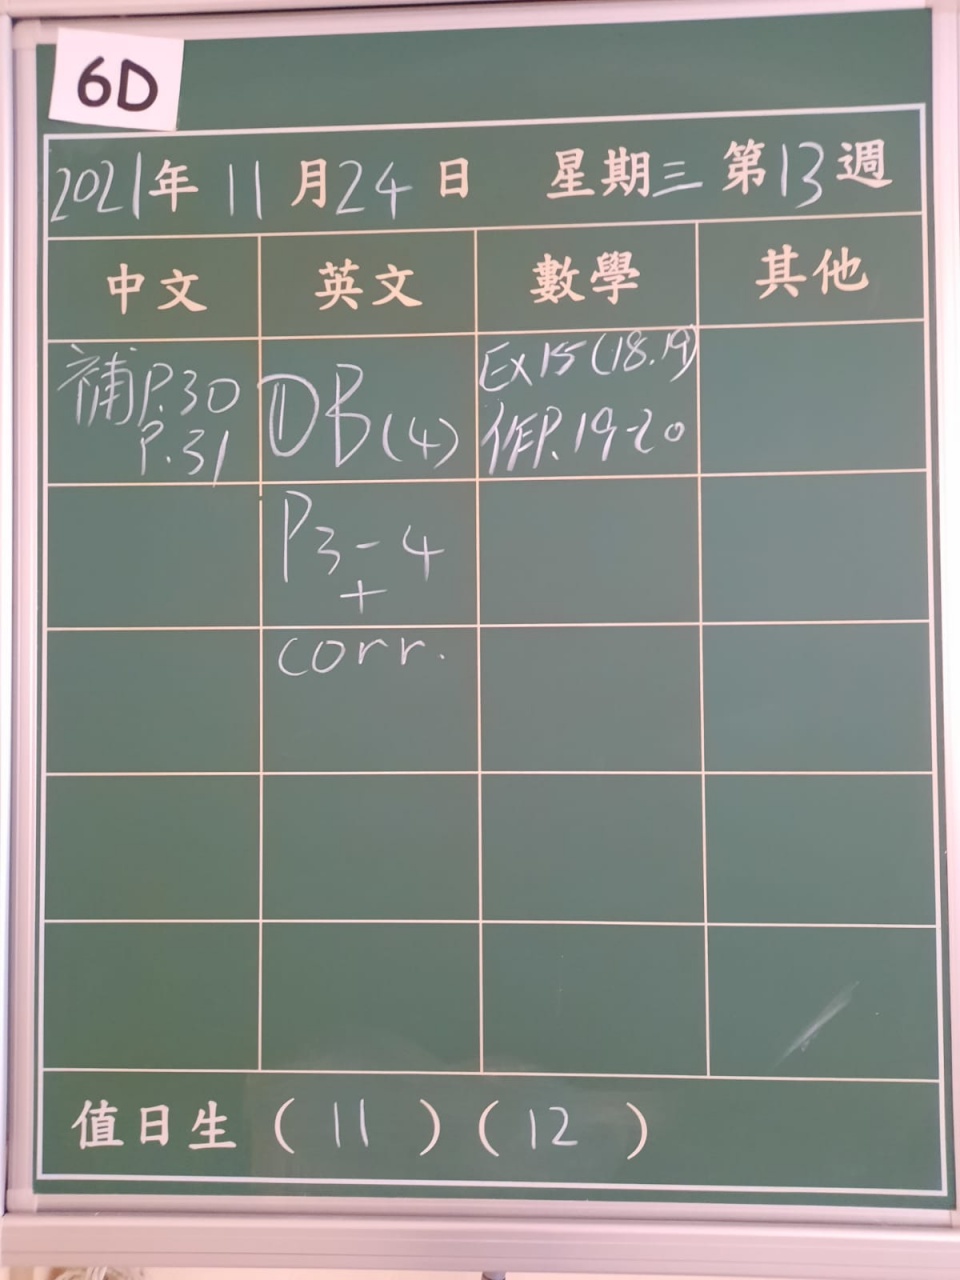 6D
2021年 11月24日 星期三 第13週
中文 英文 數學 其他
補P.30
P.31
① B(4)
P3-4
+
corr.
Ex15(18.19)
作P.19-20
值日生 (11)(12)